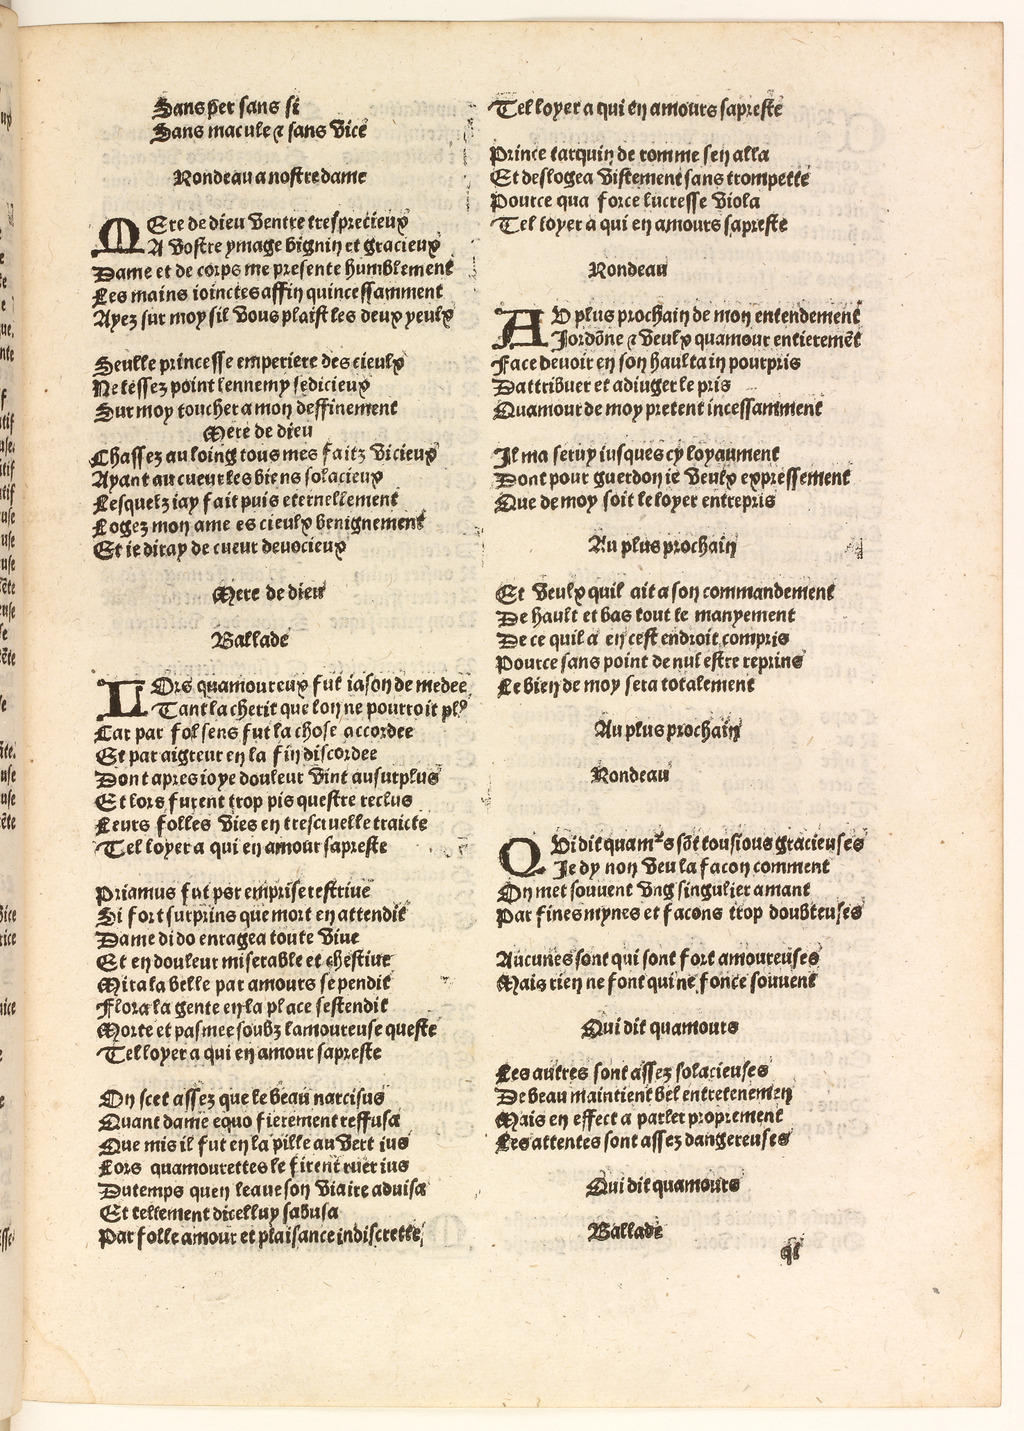 Sans per sans si
Sans macule & sans vice
Rondeau a nostre dame
MEre de dieu ventre tresprecieux
A vostre ymage bignin et gracieux
Dame et de corps me presente humblement
Les mains ioinctes affin quincessamment
Ayez sur moy sil vous plaist les deux yeulx
Seulle princesse emperiere des cieulx
Ne lessez point lennemy sedicieux
Sur moy toucher a mon deffinement
Mere de dieu
Chassez au loing tous mes faitz vicieux
Ayant au cueur les biens solacieux
Lesquelz iay fait puis eternellement
Logez mon ame es cieulx benignement
Et ie diray de cueur devocieux
Mere de dieu
Ballade
LOrs quamoureux fut iason de medee
Tant la cherit que lon ne pourroit plꝰ
Car par fol sens fut la chose accordee
Et par aigreur en la fin discordee
Dont apres ioye douleur vint au surplus
Et lors furent trop pis questre reclus
Leurs folles vies en trescruelle traicte
Tel loyer a qui en amour sapreste
Priamus fut par emprise restiue
Si fort surprins que mort en attendit
Dame dido enragea toute viue
Et en douleur miserable et chestiue
Mirala belle par amours se pendit
Flora la gente en la place sestendit
Morte et pasmee soubz lamoureuse queste
Tel loyer a qui en amour sapreste
On scet assez que le beau narcisus
Quant dame equo fierement reffusa
Que mis il fut en la pille au vert ius
Lors quamourettes le firent ruer ius
Du temps quen leaue son viaire aduisa
Et tellement dicelluy sabusa
Par folle amour et plaisance indiscrette
Tel loyer a qui en amours sapreste
Prince tarquin de romme sen alla
Et deslogea vistement sans trompette
Pource qua force lucresse viola
Tel loyer a qui en amours sapreste
Rondeau
AV plus prochain de mon entendement
Jordōne & veulx quamour entieremēt
Face devoir en son haultain pourpris
Dattribuer et adiuger le pris
Quamour de moy pretent incessamment
Il ma seruy iusques cy loyaument
Dont pour guerdon ie veulx expressement
Que de moy soit le loyer entrepris
Au plus prochain
Et veulx quil ait a son commandement
De hault et bas tout le manyement
De ce quil a en cest endroit compris
Pource sans point de nul estre reprins
Le bien de moy sera totalement
Au plus prochain
Rondeau
QVi dit quamꝰs sōt tousious gracieuses
Je dy non veu la facon comment
On met souuent vng singulier amant
Par fines mynes et facons trop doubteuses
Aucunes sont qui sont fort amoureuses
Mais rien ne font qui ne fonce souuent
Qui dit quamours
Les autres sont assez solacieuses
De beau maintient bel entretenemen
Mais en effect a parler proprement
Les attentes sont assez dangereuses
Qui dit quamours
Ballade